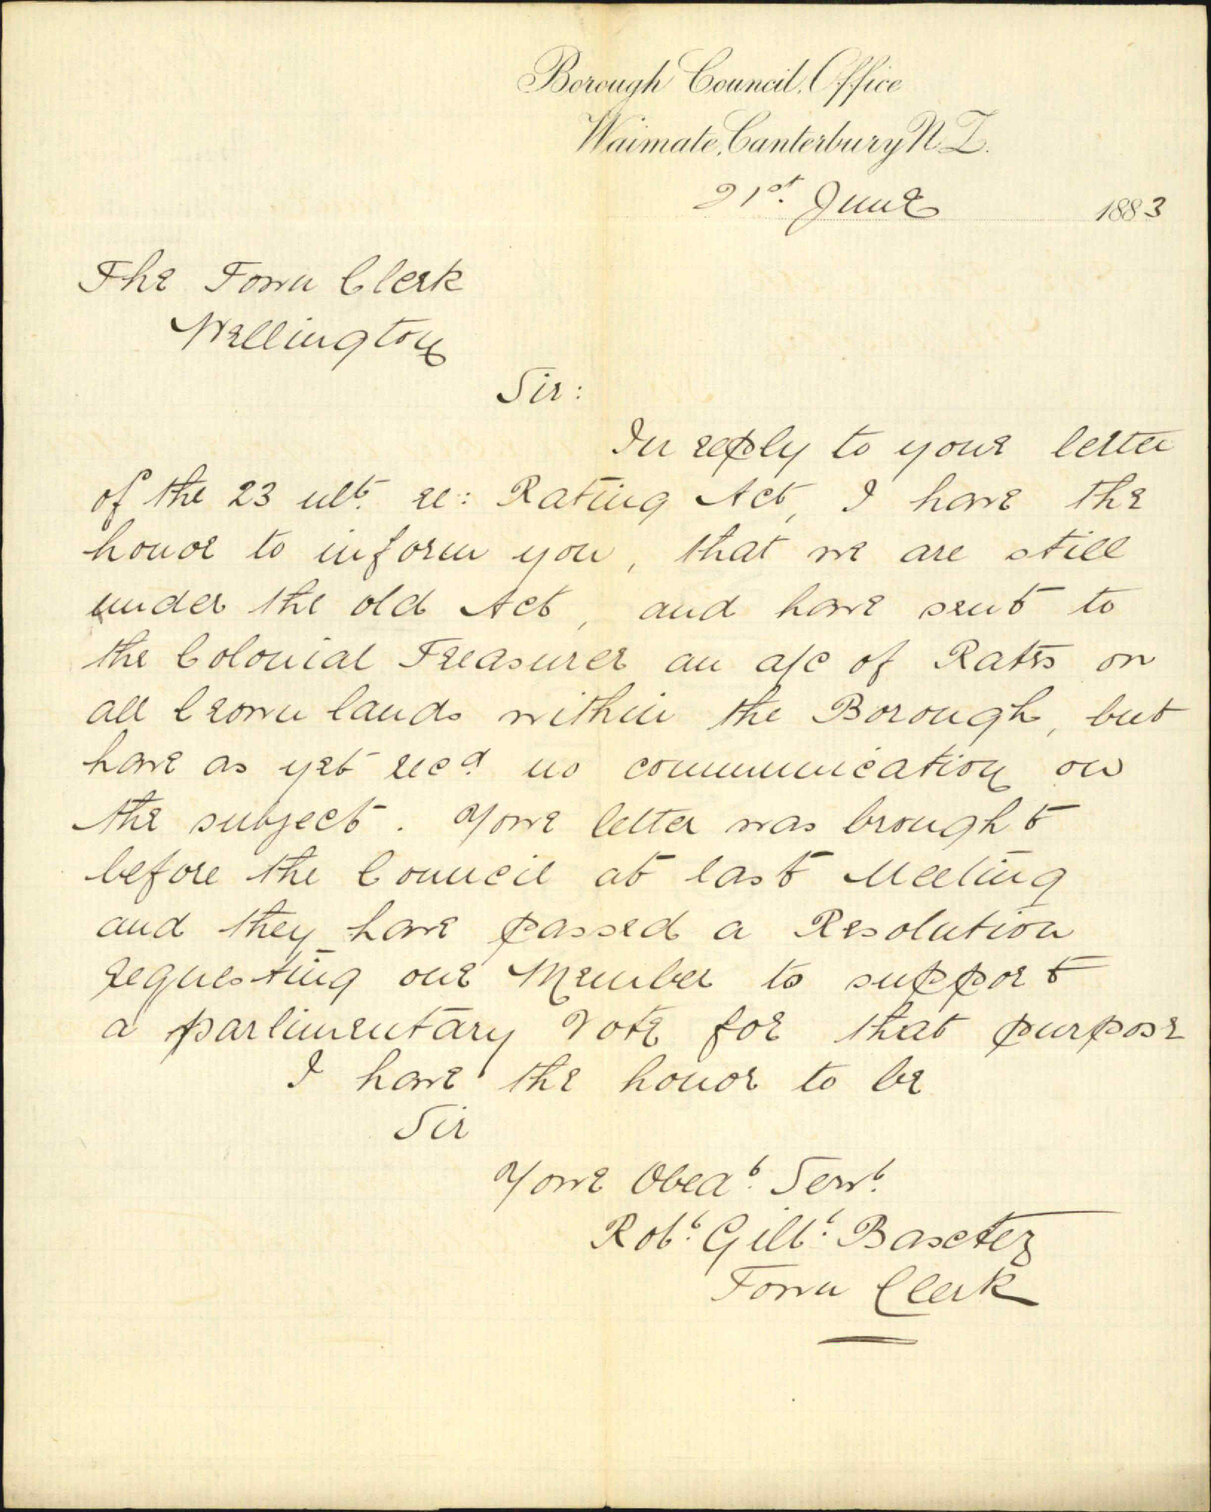 Borough Council Office
Waimate, Canterbury N.Z.
21st. June 1883
The Town Clerk
Wellington
Sir:
In reply to your letter
of the 23 ult. re: Rating Act, I have the
honor to inform you, that we are still
under the old Act, and have sent to
the Colonial Treasurer an a/c of Rates on
all Crown lands within the Borough, but
have as yet recd. no communication on
the subject. Your letter was brought
before the Council at last Meeting
and they have passed a Resolution
requesting our Member to support
a parlimentary Vote for that purpose
I have the honor to be
Sir
Your Obedt. Servt.
Robt. Gilbt. Baxter
Town Clerk